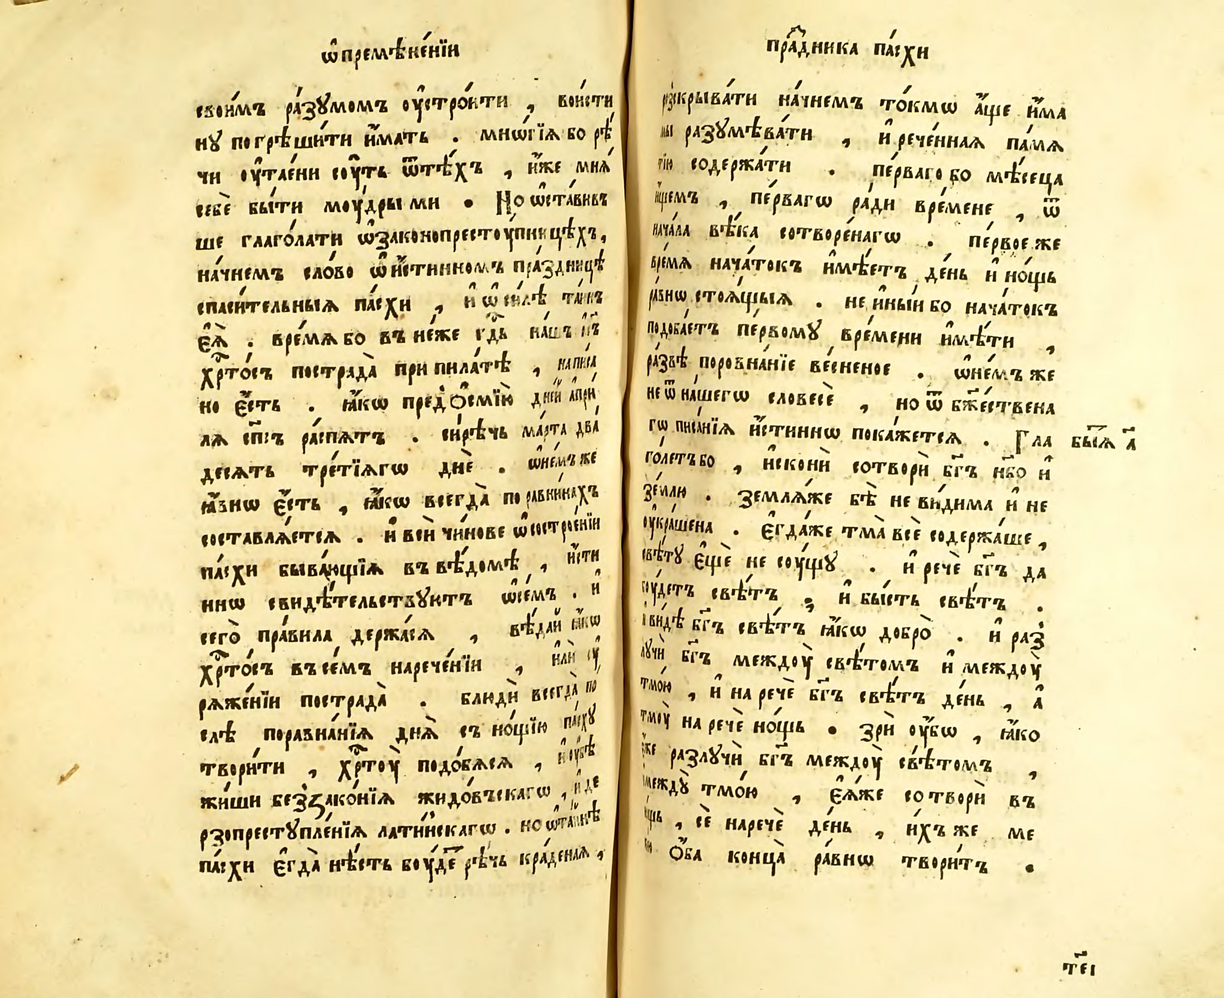 ѡ҆премѣне́нїи
свои́мъ ра́зꙋмомъ ᲂу҆стро́ити , вои́сти
нꙋ погрѣши́ти и҆́мать . мнѡ́гїѧ бо рѣ́
чи ᲂу҆таени́ сꙋ́ть ѿтѣ́хъ , и҆́же мнѧ́
себѐ бы́ти моу́дрыми • Но ѡ҆ста́вивъ
ше глаго́лати ѡ҆законопрестоу́пницѣхъ,
на́чнемъ сло́во ѡ҆и҆́стинномъ пра́здницѣ
спаси́тельныѧ па́схи , и҆ ѡ҆ си́лѣ та́инъ
є҆ѧ̀ . вре́мѧ бо въ не́же гдⷭ҇ь на́шъ і҆с҃ъ
хрⷭ҇то́съ пострада̀ при пила́тѣ , написа
но є҆́сть . ꙗ҆́кѡ пред̾ ѻ҆смїю̀ дне́й а҆при́
лѧ сп҃съ ра́спѧтъ . си́рѣчь ма́рта два́
десѧть тре́тїѧгѡ днѐ . ѡ҆не́мъ же
ꙗ҆́внѡ є҆́сть , ꙗ҆́кѡ всегда̀ по равни́нахъ
составлѧ́етсѧ . и҆ всѝ чи́нове ѡ҆ состроє́нїи
па́схи быва́ющїѧ въ вѣ́домѣ , и҆́сти
ннѡ свидѣ́тельствꙋютъ ѡ҆се́мъ . и҆
сего̀ пра́вила держа́сѧ , вѣ́даи ꙗ҆́кѡ
хрⷭ҇то́съ въ се́мъ нарече́нїи , и҆лѝ сꙋ
рѧже́нїи пострада̀ . блюдѝ всегда̀ по
слѣ поравна́нїѧ днѧ̀ съ но́щїю па́схꙋ
твори́ти , хрⷭ҇тоу̀ подо́бѧсѧ , и҆ ᲂу҆бѣ
жи́ши беззако́нїѧ жидо́въскагѡ , и҆ де
рзопреступле́нїѧ лати́нскагѡ . но ѡ҆ та́инѣ
па́схи є҆гда̀ нѣ́сть боу́де рѣ́чь кра́деная ,
пра́здника па́схи
раскрыва́ти на́чнемъ то́кмѡ а҆́ще и҆́ма
мы разꙋмѣва́ти , и҆ рече́нная па́мѧ
тїю содержа́ти . пе́рваго бо мѣ́сеца
и҆́щемъ , пе́рвагѡ ра́ди вре́мене , ѿ
нача́ла вѣ́ка сотворе́нагѡ . пе́рвое же
вре́мѧ нача́токъ и҆мѣ́етъ де́нь и҆ но́щь
ра́внѡ стоѧ́щыѧ . не и҆ны́и бо нача́токъ
подоба́етъ пе́рвомꙋ вре́мени и҆мѣ́ти ,
ра́звѣ поровна́нїе ве́сненое . ѡ҆не́мъ же
не ѿ на́шегѡ словесѐ , но ѿ бж҃е́ствена
гѡ писа́нїѧ и҆́стиннѡ пока́жетсѧ . Гла
голетъ бо , и҆сконѝ сотворѝ бг҃ъ нб҃о и҆
зе́млю . землѧ́же бѣ̀ не ви́дима и҆ не
ᲂу҆кра́шена . є҆гда́же тма̀ всѐ содержа́ше ,
свѣ́тꙋ є҆щѐ не сꙋ́щꙋ . и҆ речѐ бг҃ъ да
боу́детъ свѣ́тъ ; и҆ бы́сть свѣ́тъ .
и҆ ви́дѣ бг҃ъ свѣ́тъ ꙗ҆́кѡ добро̀ . и҆ раз
лꙋчѝ бг҃ъ междоу̀ свѣ́томъ и҆ междоу̀
тмо́ю , и҆ на речѐ бг҃ъ свѣ́тъ де́нь , а҆
тмоу̀ на речѐ но́щь • зрѝ ᲂу҆́бѡ , ꙗ҆́ко
є҆́же разлꙋчѝ бг҃ъ междоу̀ свѣ́томъ ,
и҆ междꙋ̀ тмо́ю , є҆ѧ́же сотворѝ въ
но́щь , сѐ наречѐ де́нь , и҆́хъ же ме
жи ѻ҆́ба конца̀ ра́внѡ твори́тъ •
бытїѧ̀ а҃
те҃і